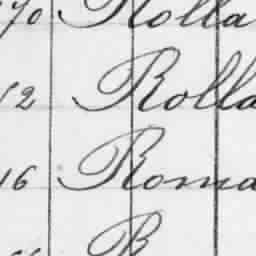 70 Rolla
12 Rolla
16 Roma